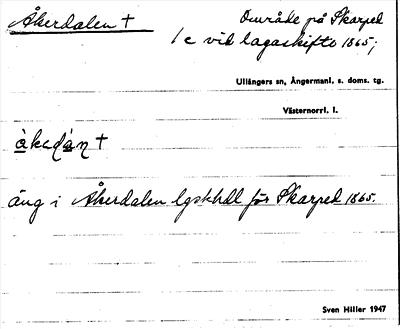 Åkerdalen † Område på Skarped
1e vid lagaskifte 1865;
Ullångers sn, Ångermanl. s. doms. tg.
Västernorrl. l.
äng i Åkerdalen lgskhdl för Skarped 1865.
Sven Hiller 1947